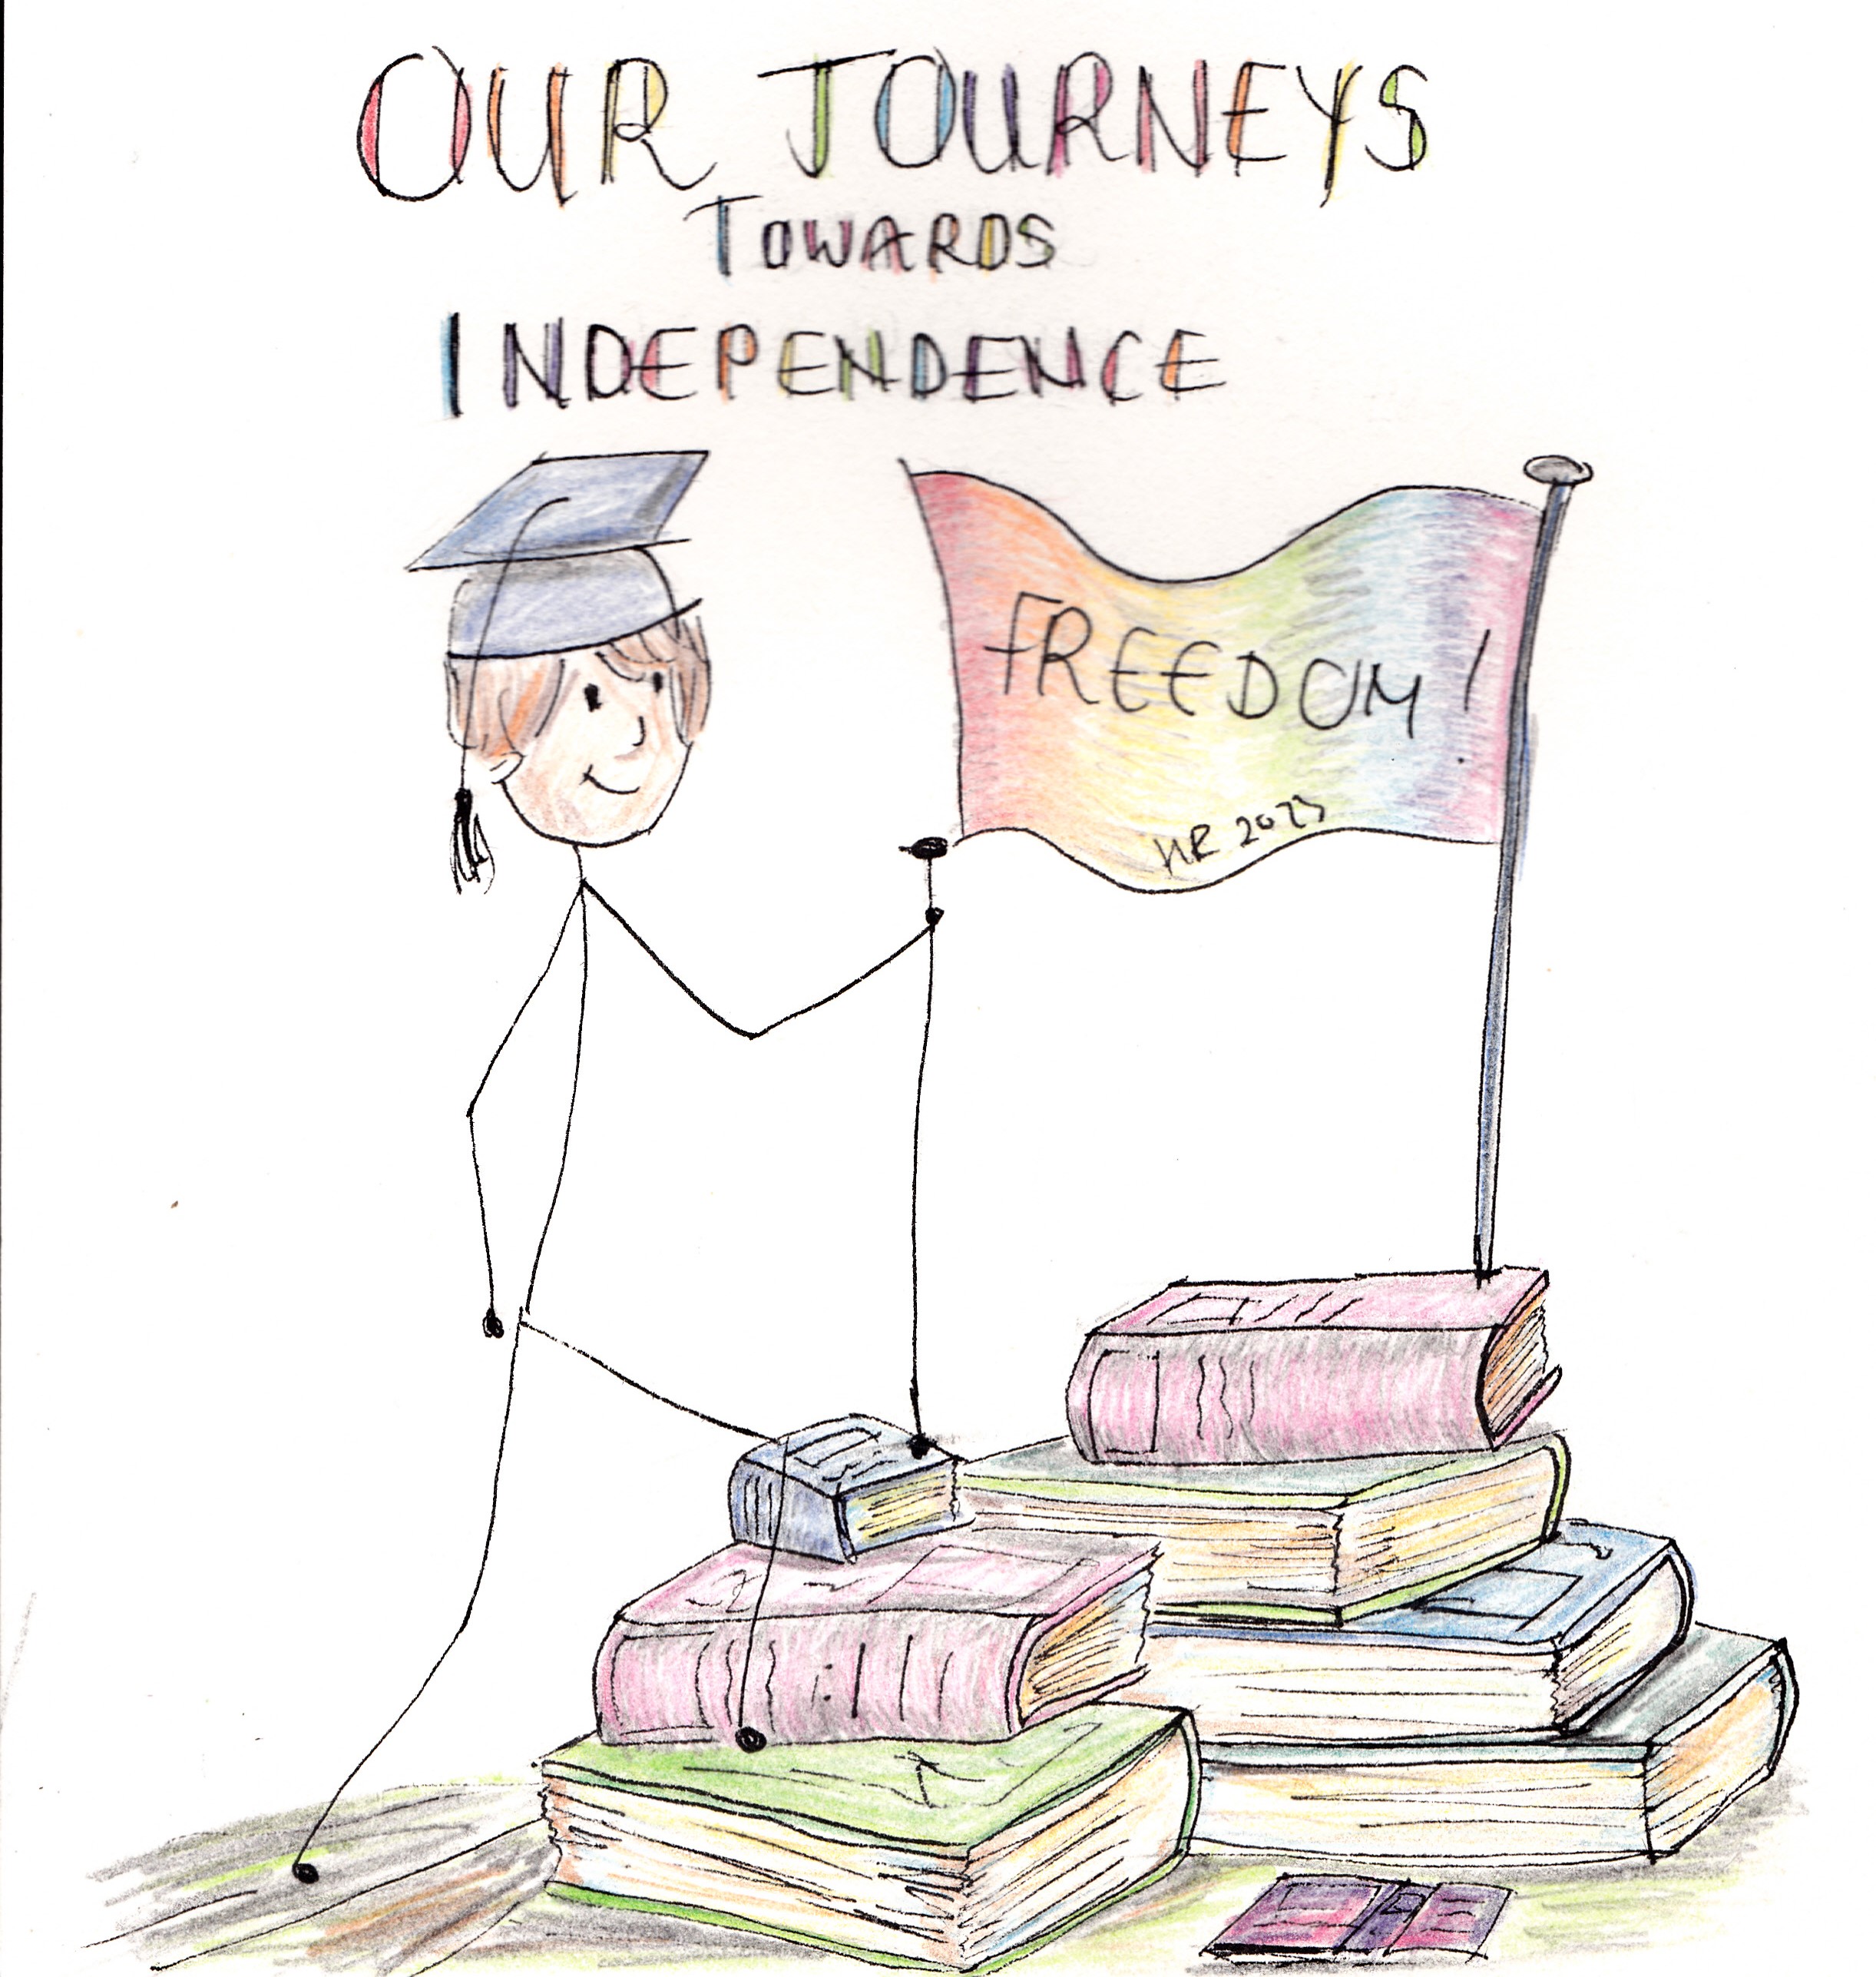 OUR JOURNEYS
TOWARDS
INDEPENDENCE
FREEDOM!
HR 2023